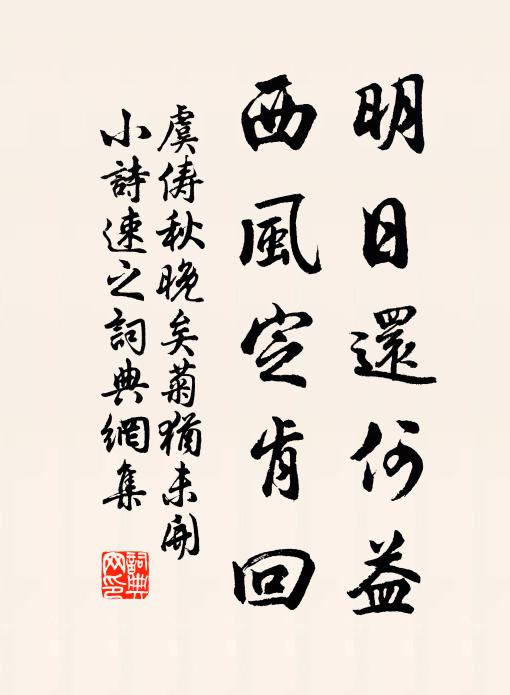 明日還何益
西風定肯回
虞儔秋晚矣菊猶未開
小詩速之詞典網集
詞典网印